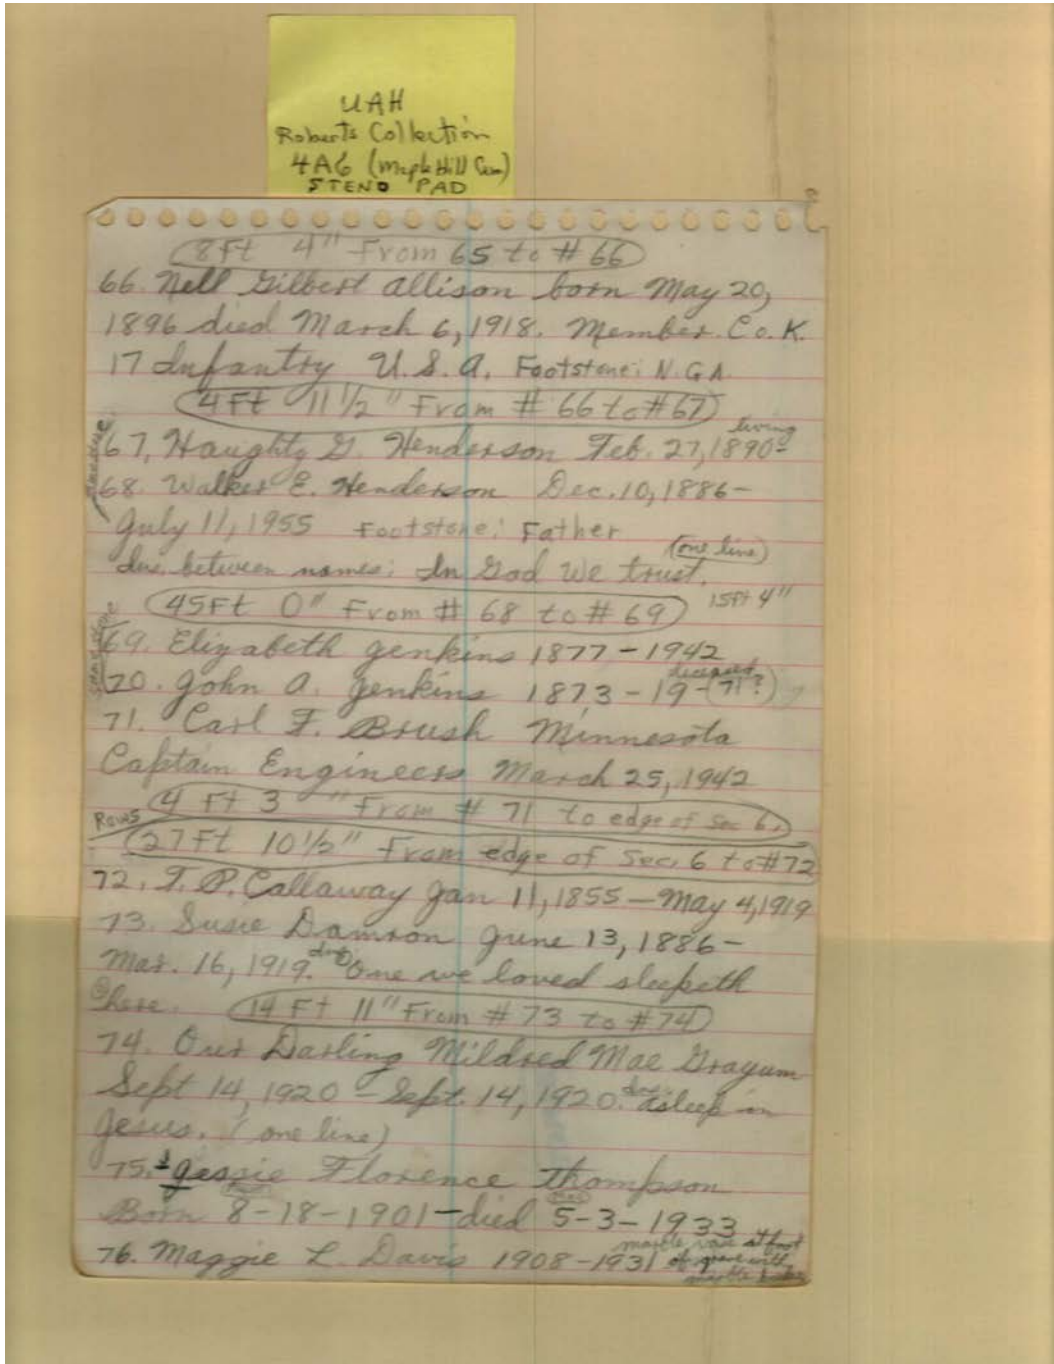 UAH
Roberts Collection
4A6 (Maple Hill Cem)
STENO PAD
8Ft 4" From 65 to # 66
66. Nell Gilbert Allison born May 20,
1896 died March 6, 1918. Member. Co. K.
17 Infantry U.S.A. Footstone: N.G.A.
4Ft 11 1/2" From # 66 to #67
living
67. Haughty G. Henderson Feb. 27, 1890-
68. Walker E. Henderson Dec. 10, 1886-
July 11, 1955 Footstone: Father
(one line)
Ins. between names: In God We trust.
45Ft 0" From # 68 to # 69
15Ft 4"
same stone
69. Elizabeth Jenkins 1877-1942
deceased
70. John A. Jenkins 1873-19-(71?)
71. Carl F. Brush Minnesota
Captain Engineers March 25, 1942
4 Ft 3 " From # 71 to edge of Sec 6.
Rows
27Ft 10 1/2" From edge of Sec. 6 to #72
72. T. P. Callaway Jan 11, 1855-May 4, 1919
73. Susie Damron June 13, 1886-
Mar. 16, 1919. Ins. One we loved sleepeth
here. 14 Ft 11" From # 73 to #74
74. Our Darling Mildred Mae Grayum
Sept 14, 1920 - Sept. 14, 1920. Ins. Asleep in
Jesus. (one line)
75. Jessie Florence Thompson
Born 8-18-1901-died 5-3-1933
76. Maggie L Davis 1908-1931
marble vase at foot
of grave with
marble